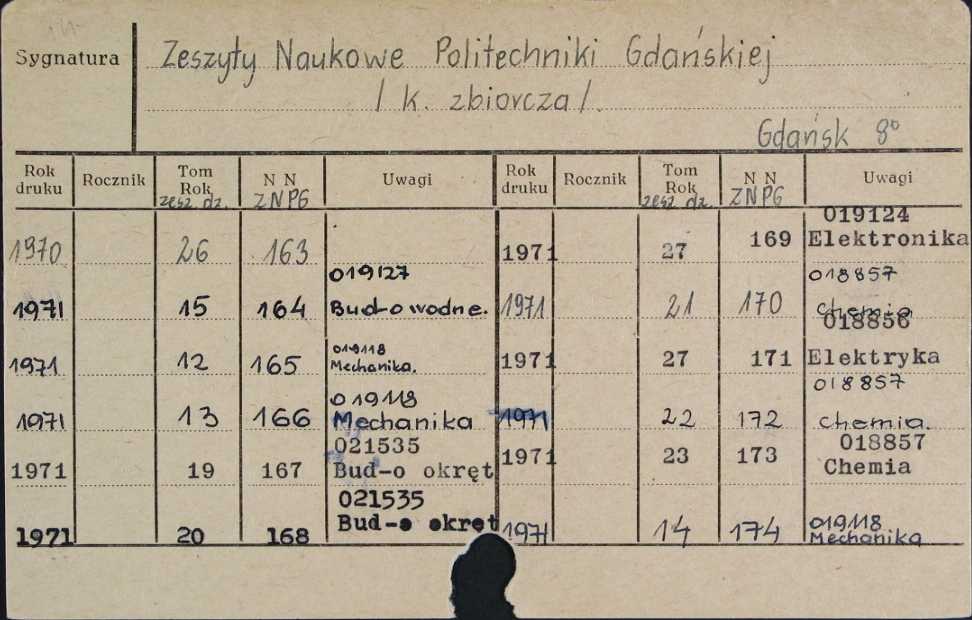 Sygnatura
Zeszyty Naukowe Politechniki Gdańskiej
/ k. zbiorcza /.
Gdańsk 8°
Rok druku Rocznik Tom Rok zesz. dz. N N ZNPG Uwagi Rok druku Rocznik Tom Rok zesz. dz. N N ZNPG Uwagi
1970 26 163
1971 15 164 019127 Bud-o wodne.
1971 12 165 019118 Mechanika.
1971 13 166 019118 Mechanika
1971 19 167 021535 Bud-o okręt
1971 20 168 021535 Bud-o okręt
1971 27 169 019124 Elektronika
1971 21 170 018857 Chemia
1971 27 171 018856 Elektryka
1971 22 172 018857 Chemia.
1971 23 173 018857 Chemia
1971 14 174 019118 Mechanika